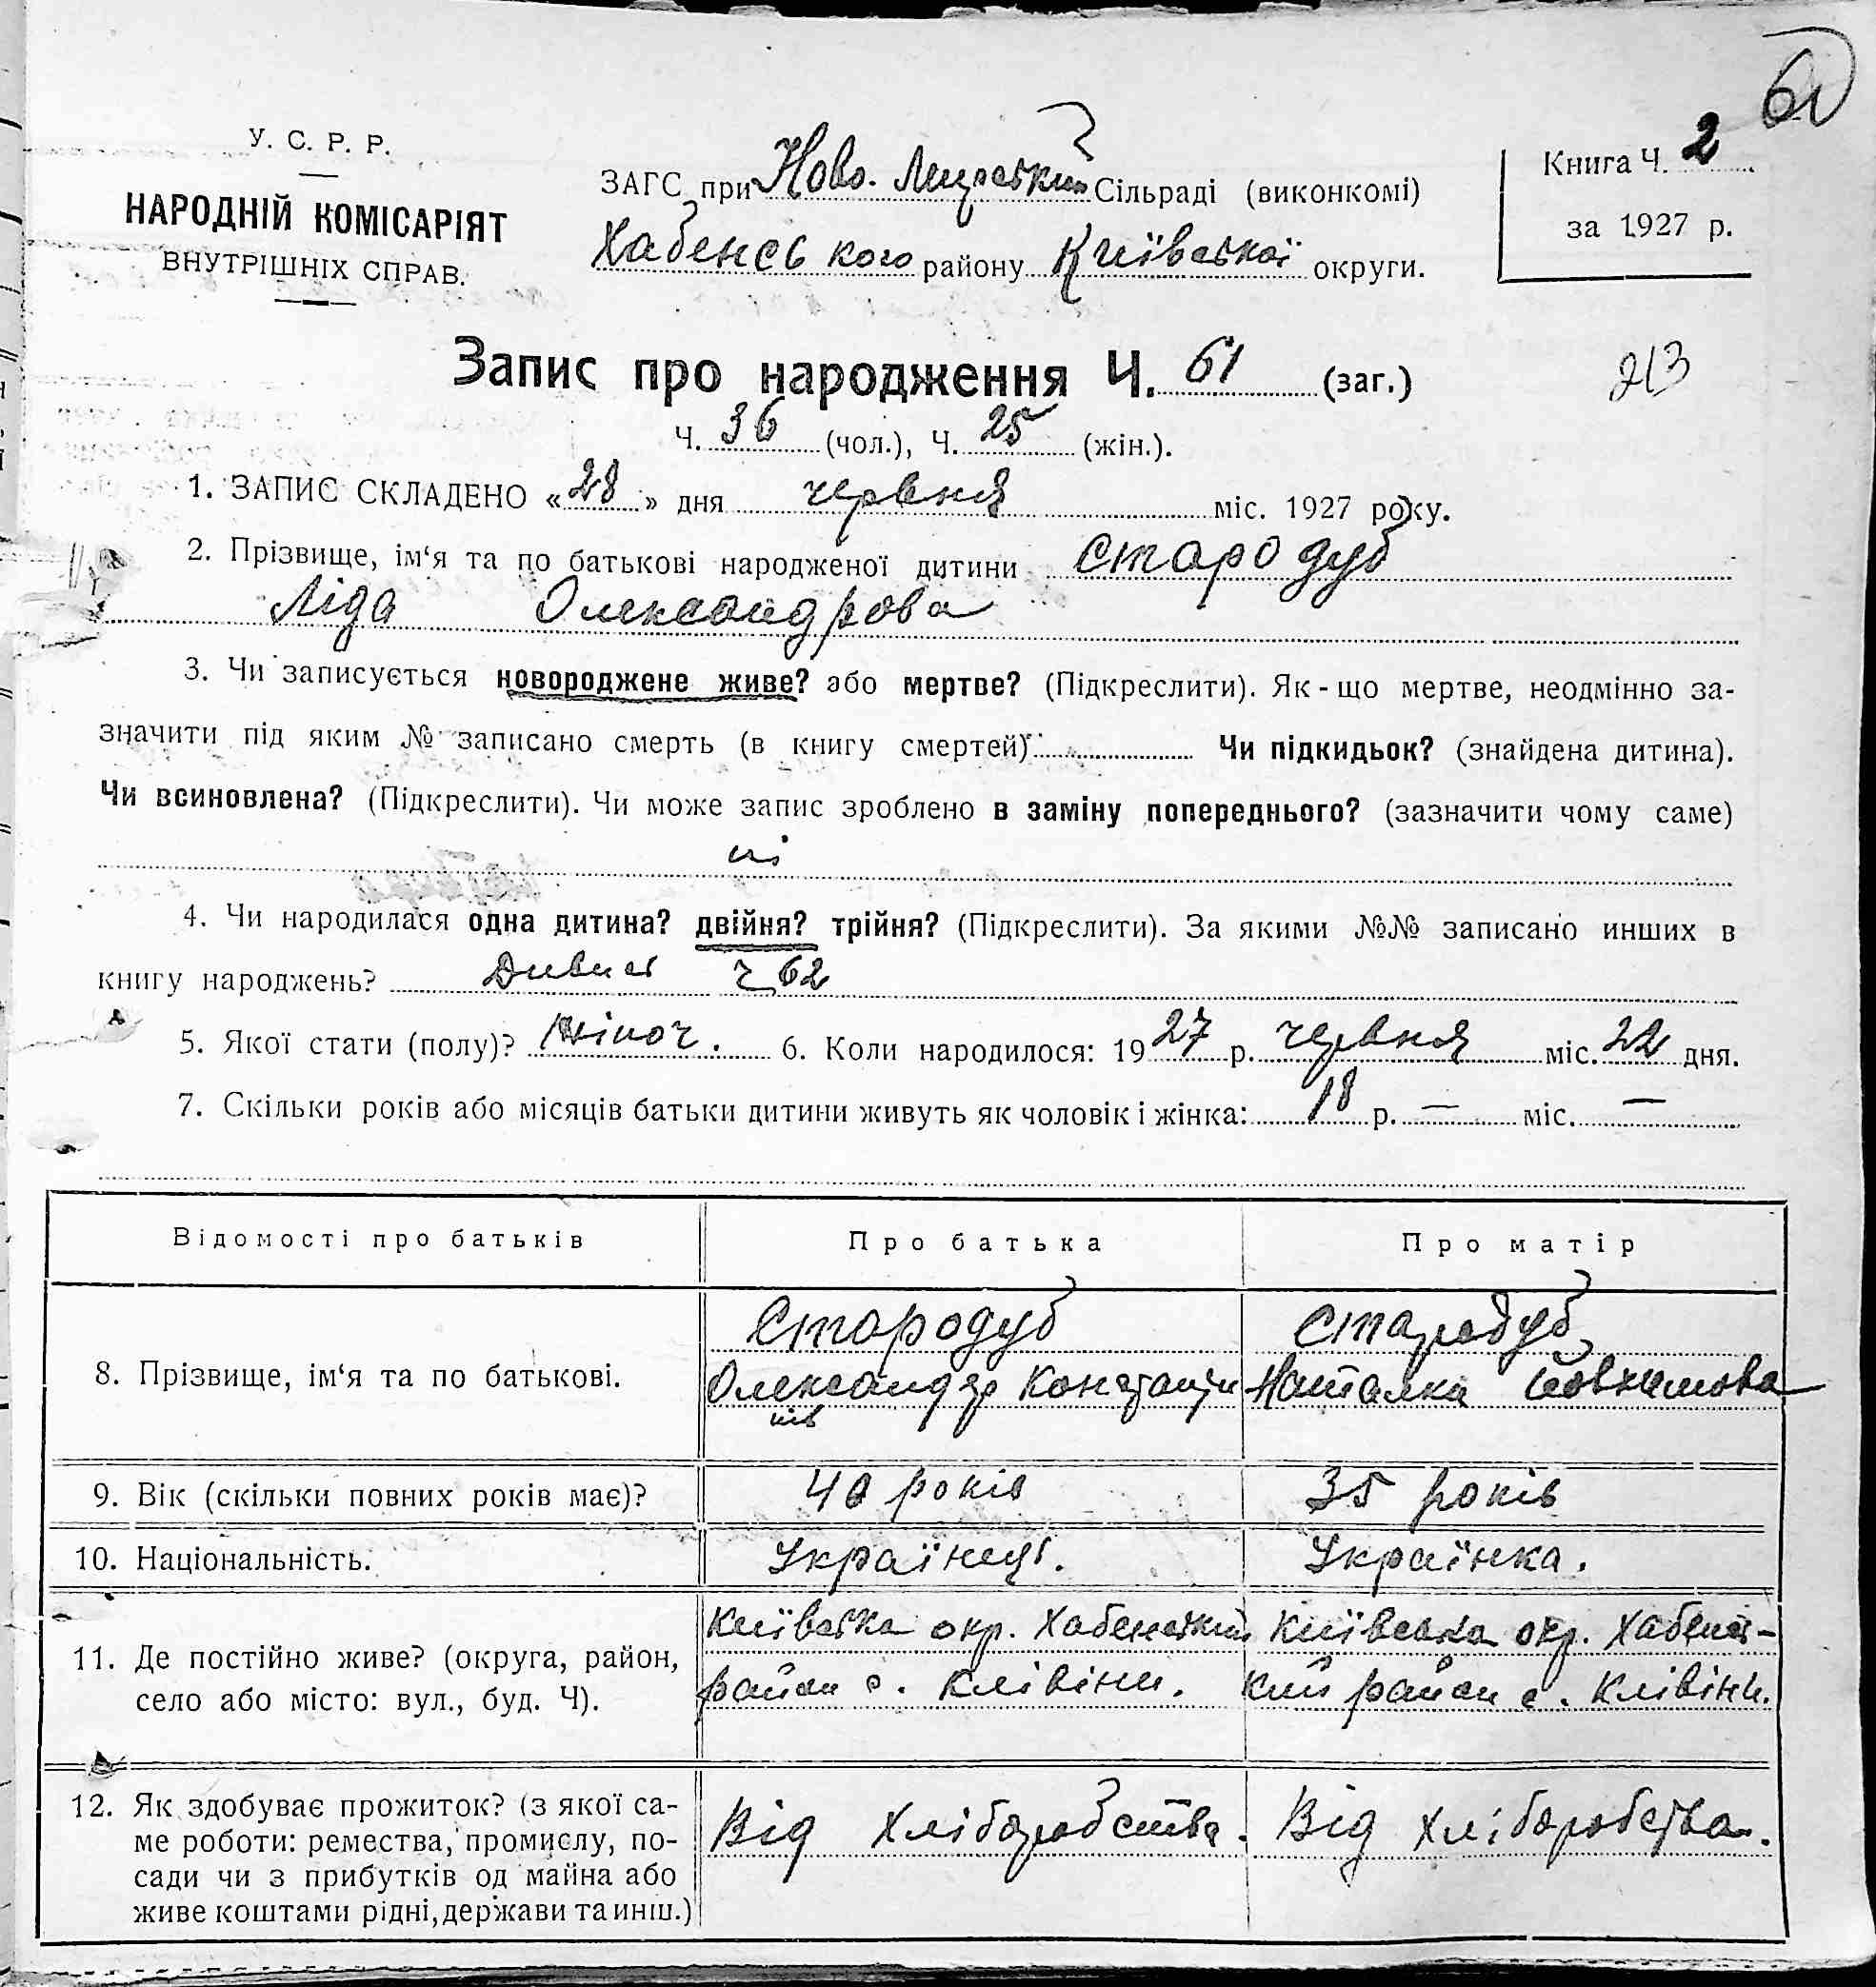 60
У. С. Р. Р.
НАРОДНІЙ КОМІСАРІЯТ
ВНУТРІШНІХ СПРАВ.
ЗАГС при Ново. Мирський Сільраді (виконкомі)
Хабенського району Київської округи.
Книга Ч. 2
за 1927 р.
Запис про народження Ч. 61 (заг.)
213
Ч. 36 (чол.), Ч. 25 (жін.).
1. ЗАПИС СКЛАДЕНО «28» дня червня міс. 1927 року.
2. Прізвище, ім‘я та по батькові народженої дитини Стародуб
Ліда Олександрова
3. Чи записується новороджене живе? або мертве? (Підкреслити). Як-що мертве, неодмінно за-
значити під яким № записано смерть (в книгу смертей) Чи підкидьок? (знайдена дитина).
Чи всиновлена? (Підкреслити). Чи може запис зроблено в заміну попереднього? (зазначити чому саме)
ні
4. Чи народилася одна дитина? двійня? трійня? (Підкреслити). За якими №№ записано инших в
книгу народжень? Дивись ч 62
5. Якої стати (полу)? жіноч. 6. Коли народилося: 1927 р. червня міс. 22 дня.
7. Скільки років або місяців батьки дитини живуть як чоловік і жінка: 18 р. — міс. —
Відомості про батьків Про батька Про матір
8. Прізвище, ім‘я та по батькові.
Стародуб
Олександр Константи
нів
Стародуб
Наталка
9. Вік (скільки повних років має)? 40 років 35 років
10. Національність. Українець. Українка.
11. Де постійно живе? (округа, район,
село або місто: вул., буд. Ч).
Київська окр. Хабенський
район с. Клівіни.
Київська окр. Хабенсь-
кий район с. Клівіни.
12. Як здобуває прожиток? (з якої са-
ме роботи: ремества, промислу, по-
сади чи з прибутків од майна або
живе коштами рідні, держави та инш.)
Від Хліборобства.
Від хліборобства.